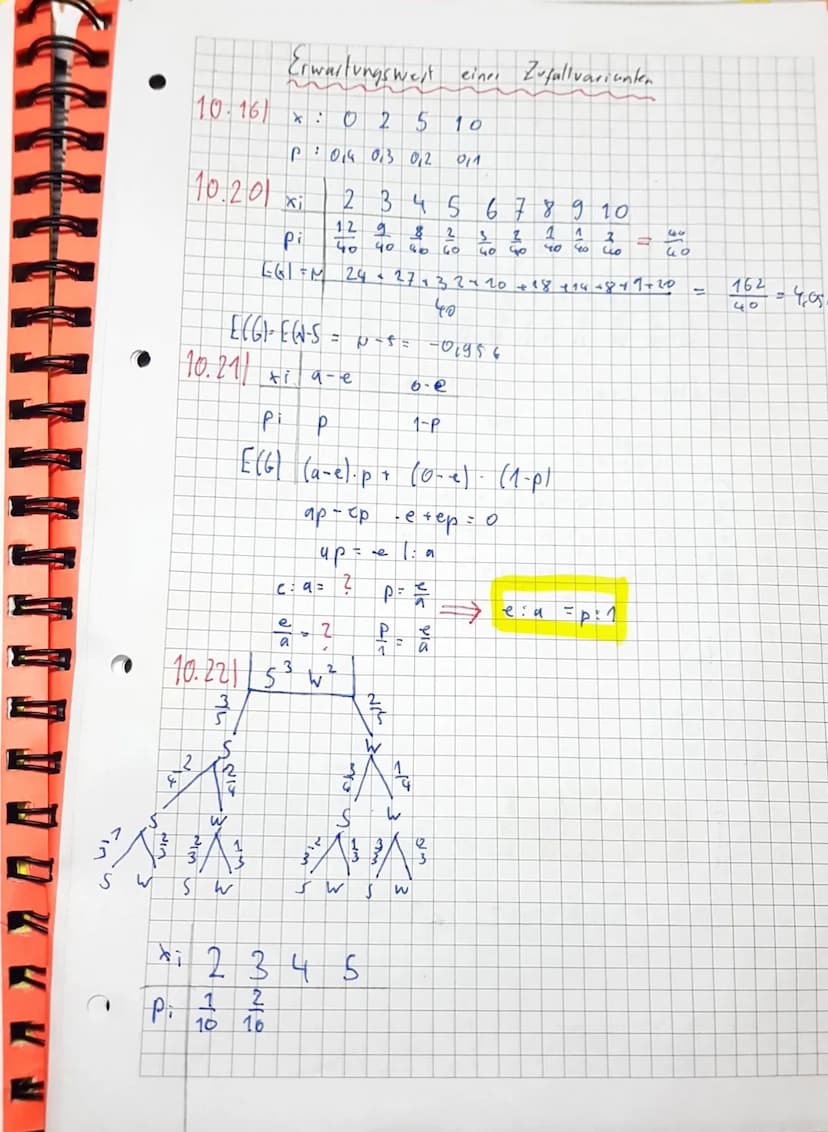 Erwartungswert einer Zufallvarianten
10.16) x : 0 2 5 10
p : 0,4 0,3 0,2 0,1
10.20) xi 2 3 4 5 6 7 8 9 10
pi 12/40 9/40 8/40 2/40 3/40 2/40 1/40 1/40 2/40 = 40/40
E(G) = μ 24 + 27 + 32 + 10 + 18 + 14 + 8 + 9 + 20 / 40 = 162/40 = 4,05
E(G) = E(X)-5 = μ - 5 = -0,95 €
10.21) xi a-e 0-e
pi p 1-p
E(G) (a-e)·p + (0-e) · (1-p)
ap - ep - e + ep = 0
ap = e |: a
e : a = ? p = e/a ⇒ e : a = p : 1
e/a = ? p/1 = e/a
10.22) S³ W²
3/5 2/5
S W
2/4 2/4 3/4 1/4
S W S W
1/3 2/3 2/3 1/3 2/3 1/3 3/3
S W S W S W S W
xi 2 3 4 5
pi 1/10 2/10